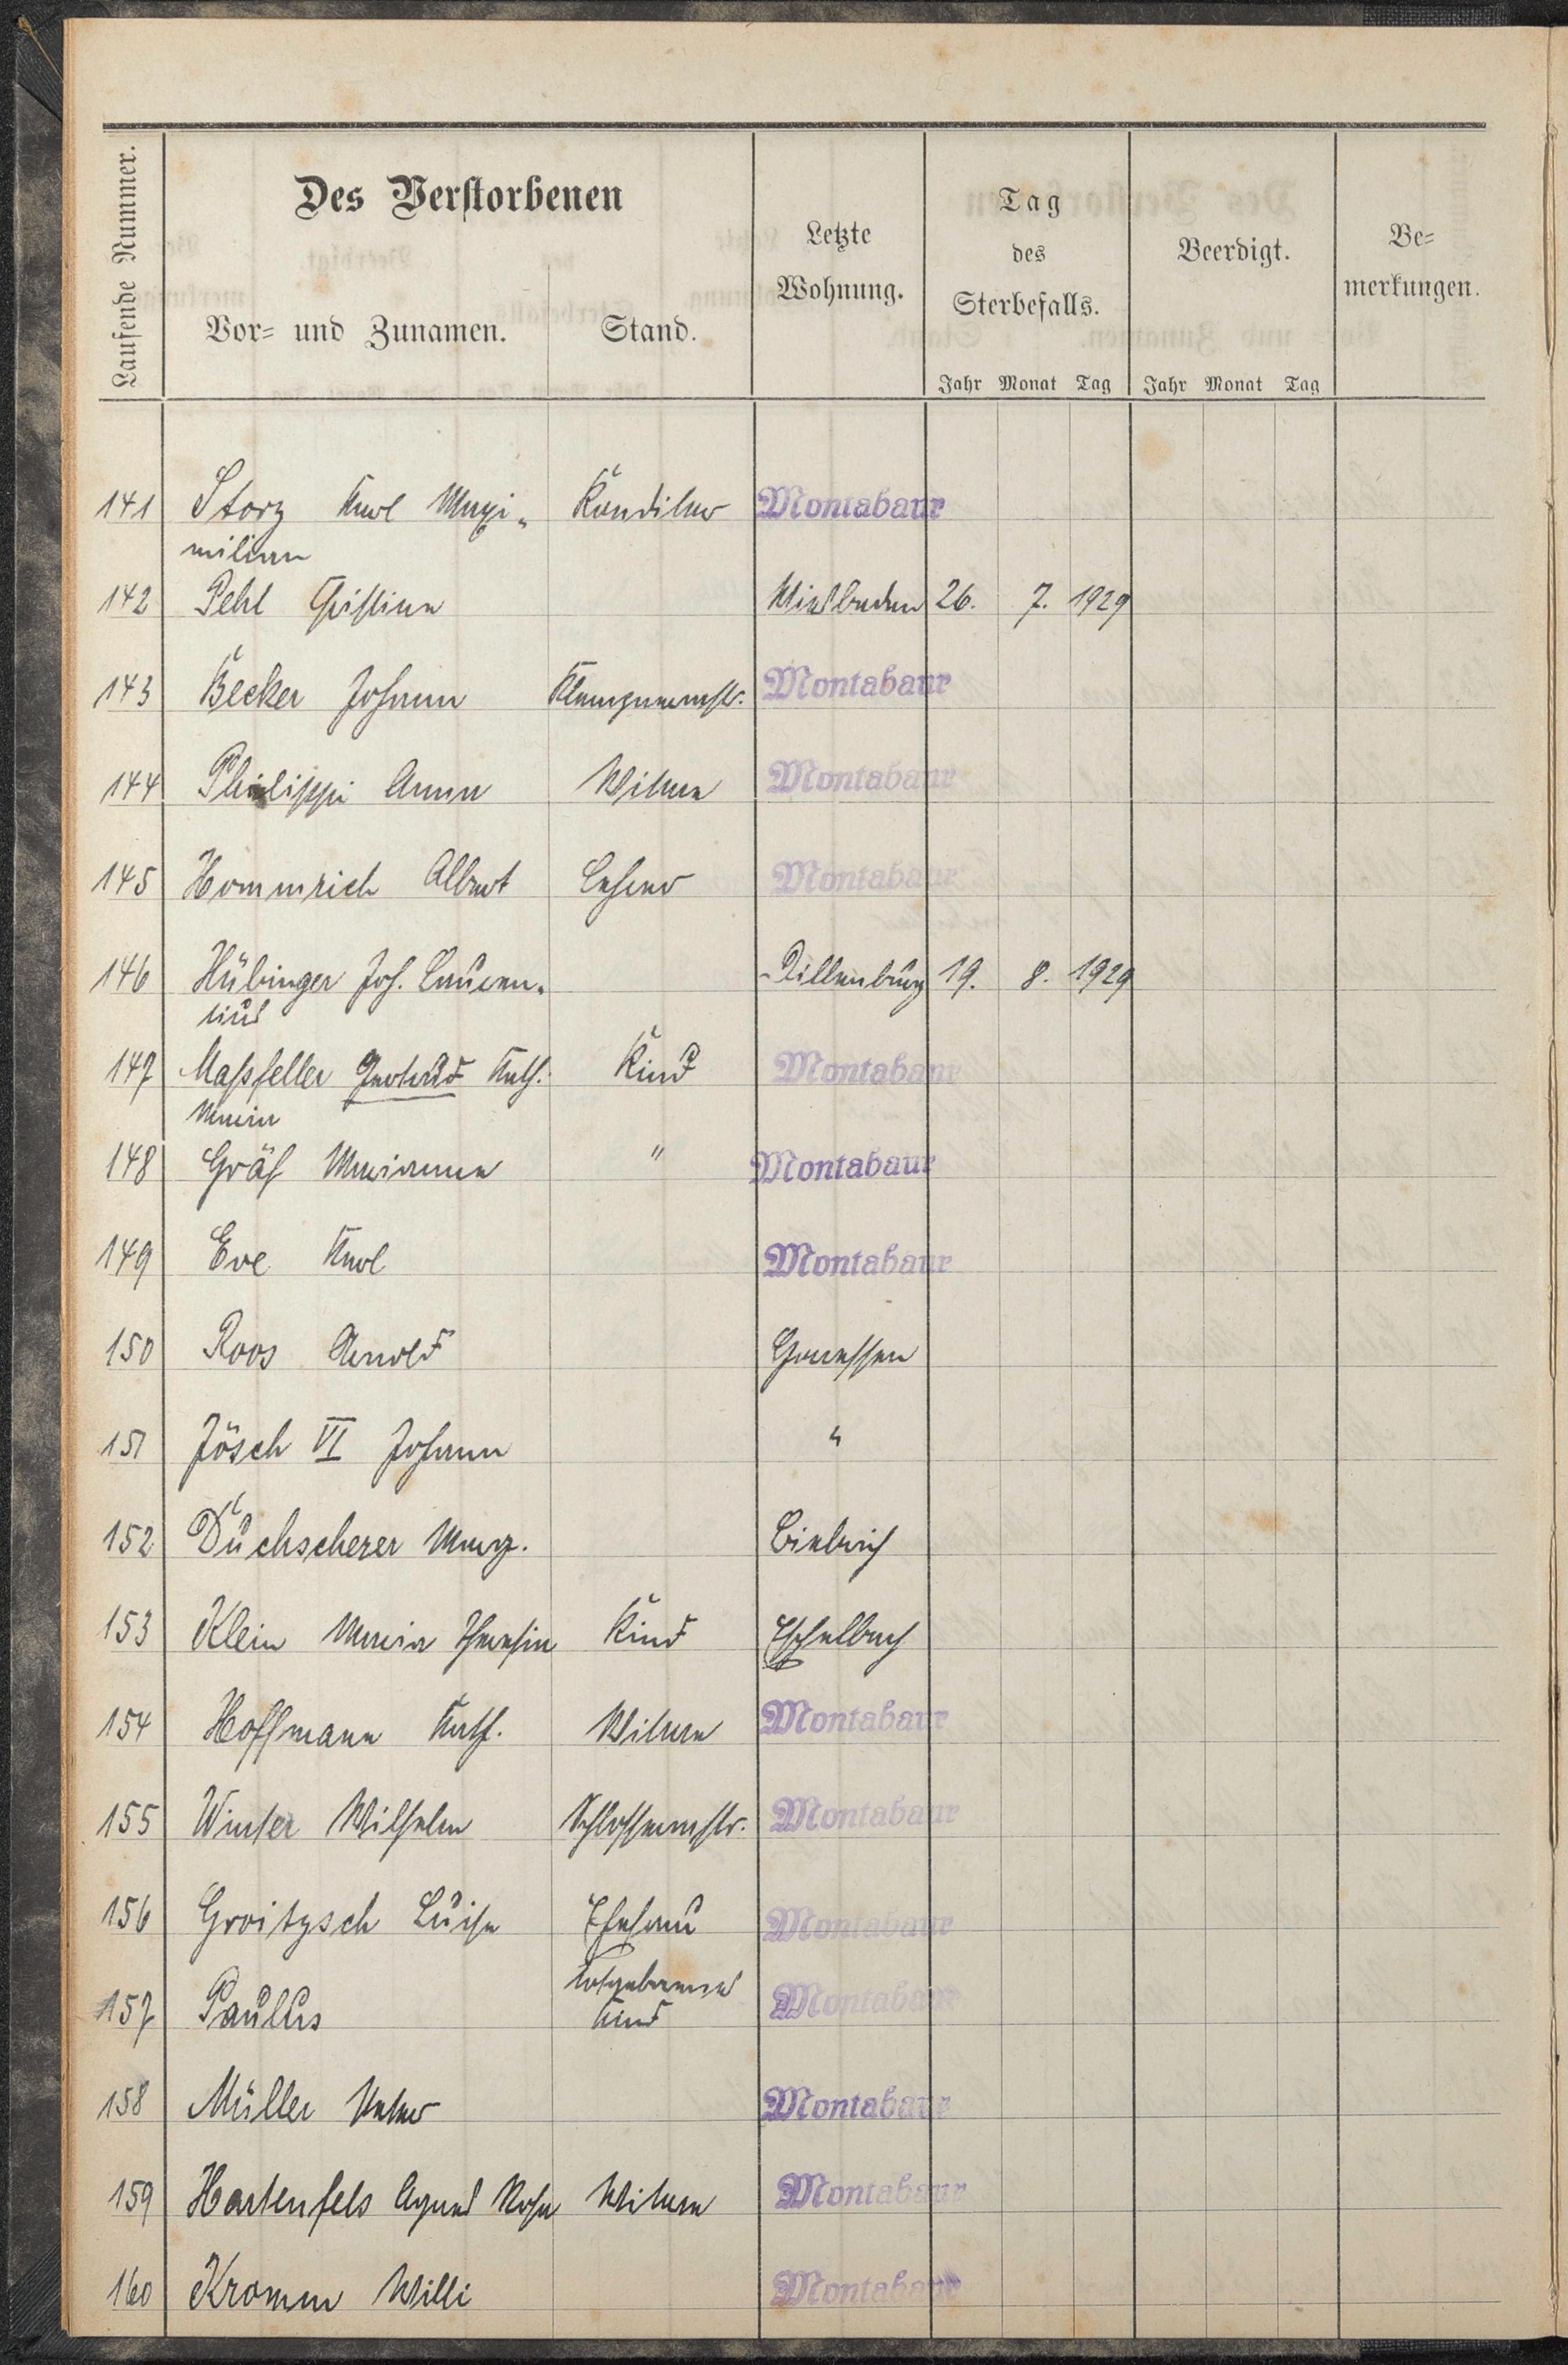 Laufende Nummer.
Des Verstorbenen
Vor- und Zunamen.
Stand.
Letzte
Wohnung.
Tag
des
Sterbefalls.
Jahr Monat Tag
Beerdigt.
Jahr Monat Tag
Be-
merkungen.
141 Storz Karl Maxi- Konditor Montabaur
milian
142 Pehl Christine Wiesbaden 26. 7. 1929
143 Becker Johann Klempnermstr. Montabaur
144 Philippi Anna Witwe Montabaur
145 Hommrich Albert Lehrer Montabaur
146 Hübinger Joh. Lauren- Dillenburg 19. 8. 1929
tius
147 Maßfeller Gertrud Kath. Kind Montabaur
Maria
148 Gräf Marianne " Montabaur
149 Eve Karl Montabaur
150 Roos Arnold Horressen
151 Jösch VI Johann "
152 Duchscherer Marg. Biebrich
153 Klein Maria Theresia Kind Eschelbach
154 Hoffmann Kath. Witwe Montabaur
155 Winter Wilhelm Schlossermstr. Montabaur
156 Groitzsch Luise Ehefrau Montabaur
totgeborenes
157 Paulus Kind Montabaur
158 Müller Peter Montabaur
159 Hartenfels Agnes Rosa Witwe Montabaur
160 Kromm Willi Montabaur